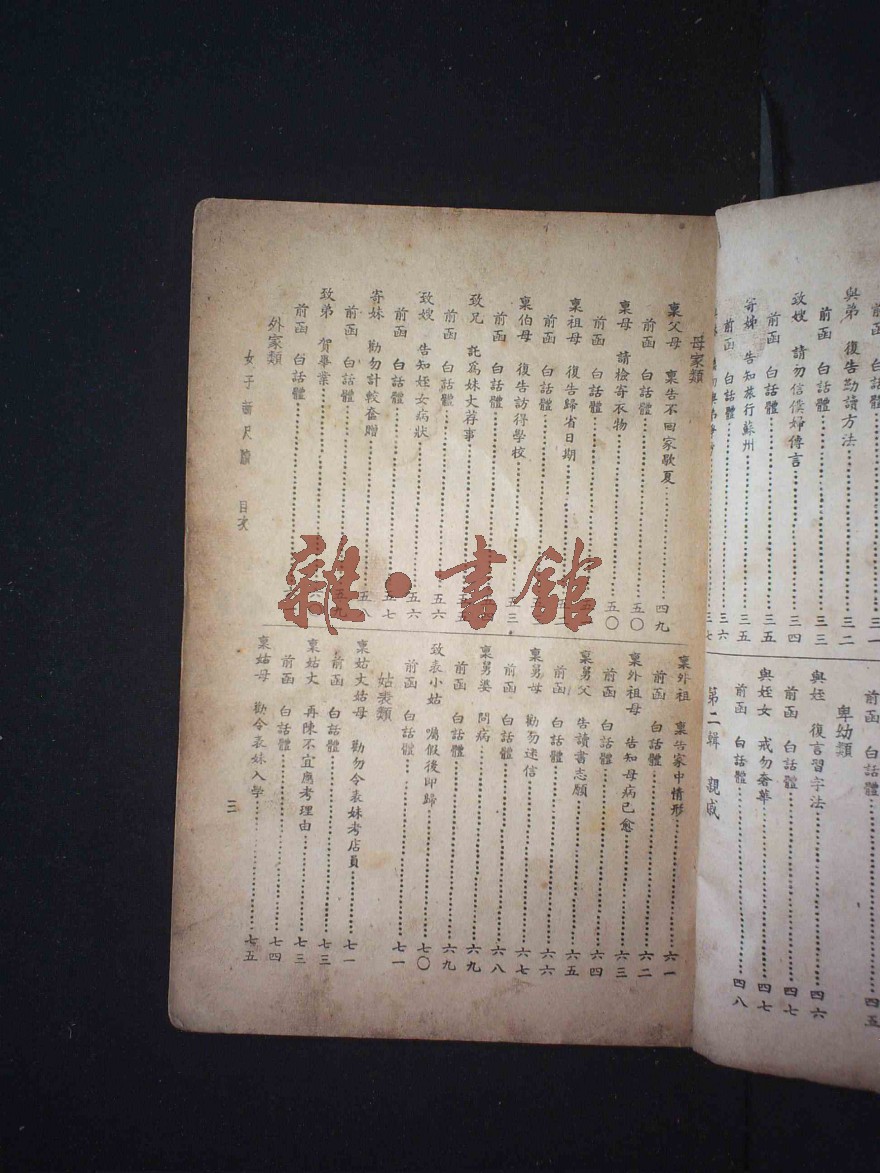 前函
與弟 復告勤讀方法
三一
前函 白話體
三二
致嫂 請勿信僕婦傳言
三三
前函 白話體
三四
寄姊 告知旅行蘇州
三五
前函 白話體
三五
三六
三七
前函 白話體
四五
卑幼類
與姪 復言習字法
四六
前函 白話體
四七
與姪女 戒勿奢華
四七
前函 白話體
四八
第二輯 親戚
母家類
稟父母 稟告不回家歇夏
四九
前函 白話體
五〇
稟母 請檢寄衣物
五〇
前函 白話體
稟祖母 復告歸省日期
前函 白話體
稟伯母 復告訪得學校
五三
前函 白話體
致兄 託為妹丈荐事
前函 白話體
五六
致嫂 告知姪女病狀
五六
前函 白話體
五七
寄妹 勸勿計較奩贈
五八
前函 白話體
五九
致弟 賀畢業
前函 白話體
外家類
稟外祖 稟告家中情形
六一
前函 白話體
六二
稟外祖母 告知母病已愈
六三
前函 白話體
六四
稟舅父 告讀書志願
六五
前函 白話體
六六
稟舅母 勸勿迷信
六七
前函 白話體
六八
稟舅婆 問病
六九
前函 白話體
六九
致表小姑 囑假後即歸
七〇
前函 白話體
七一
姑表類
稟姑丈姑母 勸勿令表妹考店員
七一
前函 白話體
七三
稟姑丈 再陳不宜應考理由
七三
前函 白話體
七四
稟姑母 勸令表妹入學
七五
女子新尺牘 目次
三
雜·書館